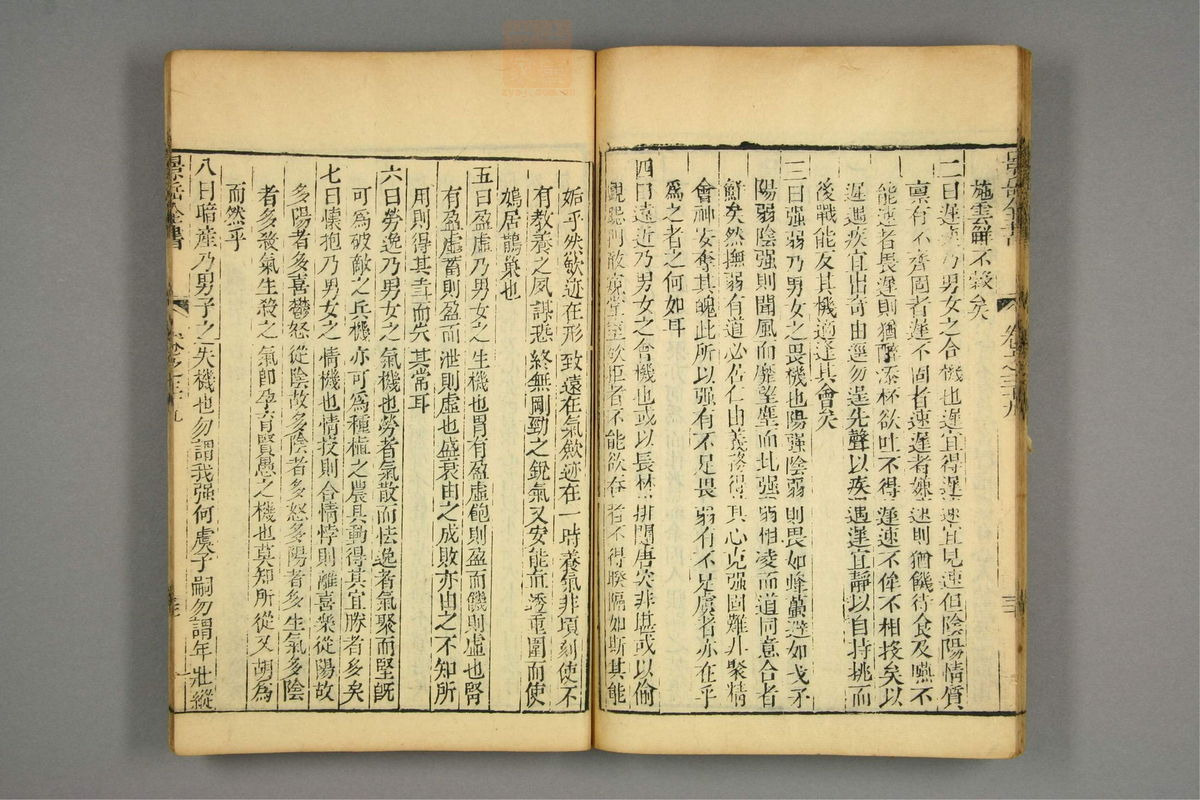 施雲鮮不殺矣
二曰遲速乃男女之合機也遲宜得遲速宜見速但陰陽情質
稟有不齊固者遲不固者速遲者嫌速則猶饑待食及嚥不
能速者畏遲則猶醉添杯欲吐不得遲速不侔不相投矣以
遲遇疾宜出奇由逕勿逞先聲以疾遇遲宜靜以自持挑而
後戰能反其機適逢其會矣
三曰强弱乃男女之畏機也陽强陰弱則畏如蜂蠆避如戈矛
陽弱陰强則聞風而靡望塵而北强弱相凌而道同意合者
鮮矣然撫弱有道必居仁由義務得其心克强固難非聚精
會神安奪其魄此所以强有不足畏弱有不足虞者亦在乎
為之者之何如耳
四曰遠近乃男女之會機也或以長材排闥唐突非堪或以偷
覷跂門敞寬堂室欲拒者不能欲吞者不得暌隔如斯其能
姤乎然欲近在形致遠在氣歛迹在一時養氣非頃刻使不
有教養之夙謀恐終無剛勁之銳氣又安能直透重圍而使
鳩居鵲巢也
五曰盈虛乃男女之生機也胃有盈虛飽則盈而饑則虛也腎
有盈虛蓄則盈而泄則虛也盛衰由之成敗亦由之不知所
用則得其𡸁而失其常耳
六曰勞逸乃男女之氣機也勞者氣散而怯逸者氣聚而堅旣
可為破敵之兵機亦可為種植之農具動得其宜勝者多矣
七曰懷抱乃男女之情機也情投則合情悖則離喜樂從陽故
多陽者多喜鬱怒從陰故多陰者多怒多陽者多生氣多陰
者多殺氣生殺之氣卽孕育賢愚之機也莫知所從又胡為
而然乎
八曰暗產乃男子之失機也勿謂我强何慮子嗣勿謂年壯縱
景岳全書
卷之三十九